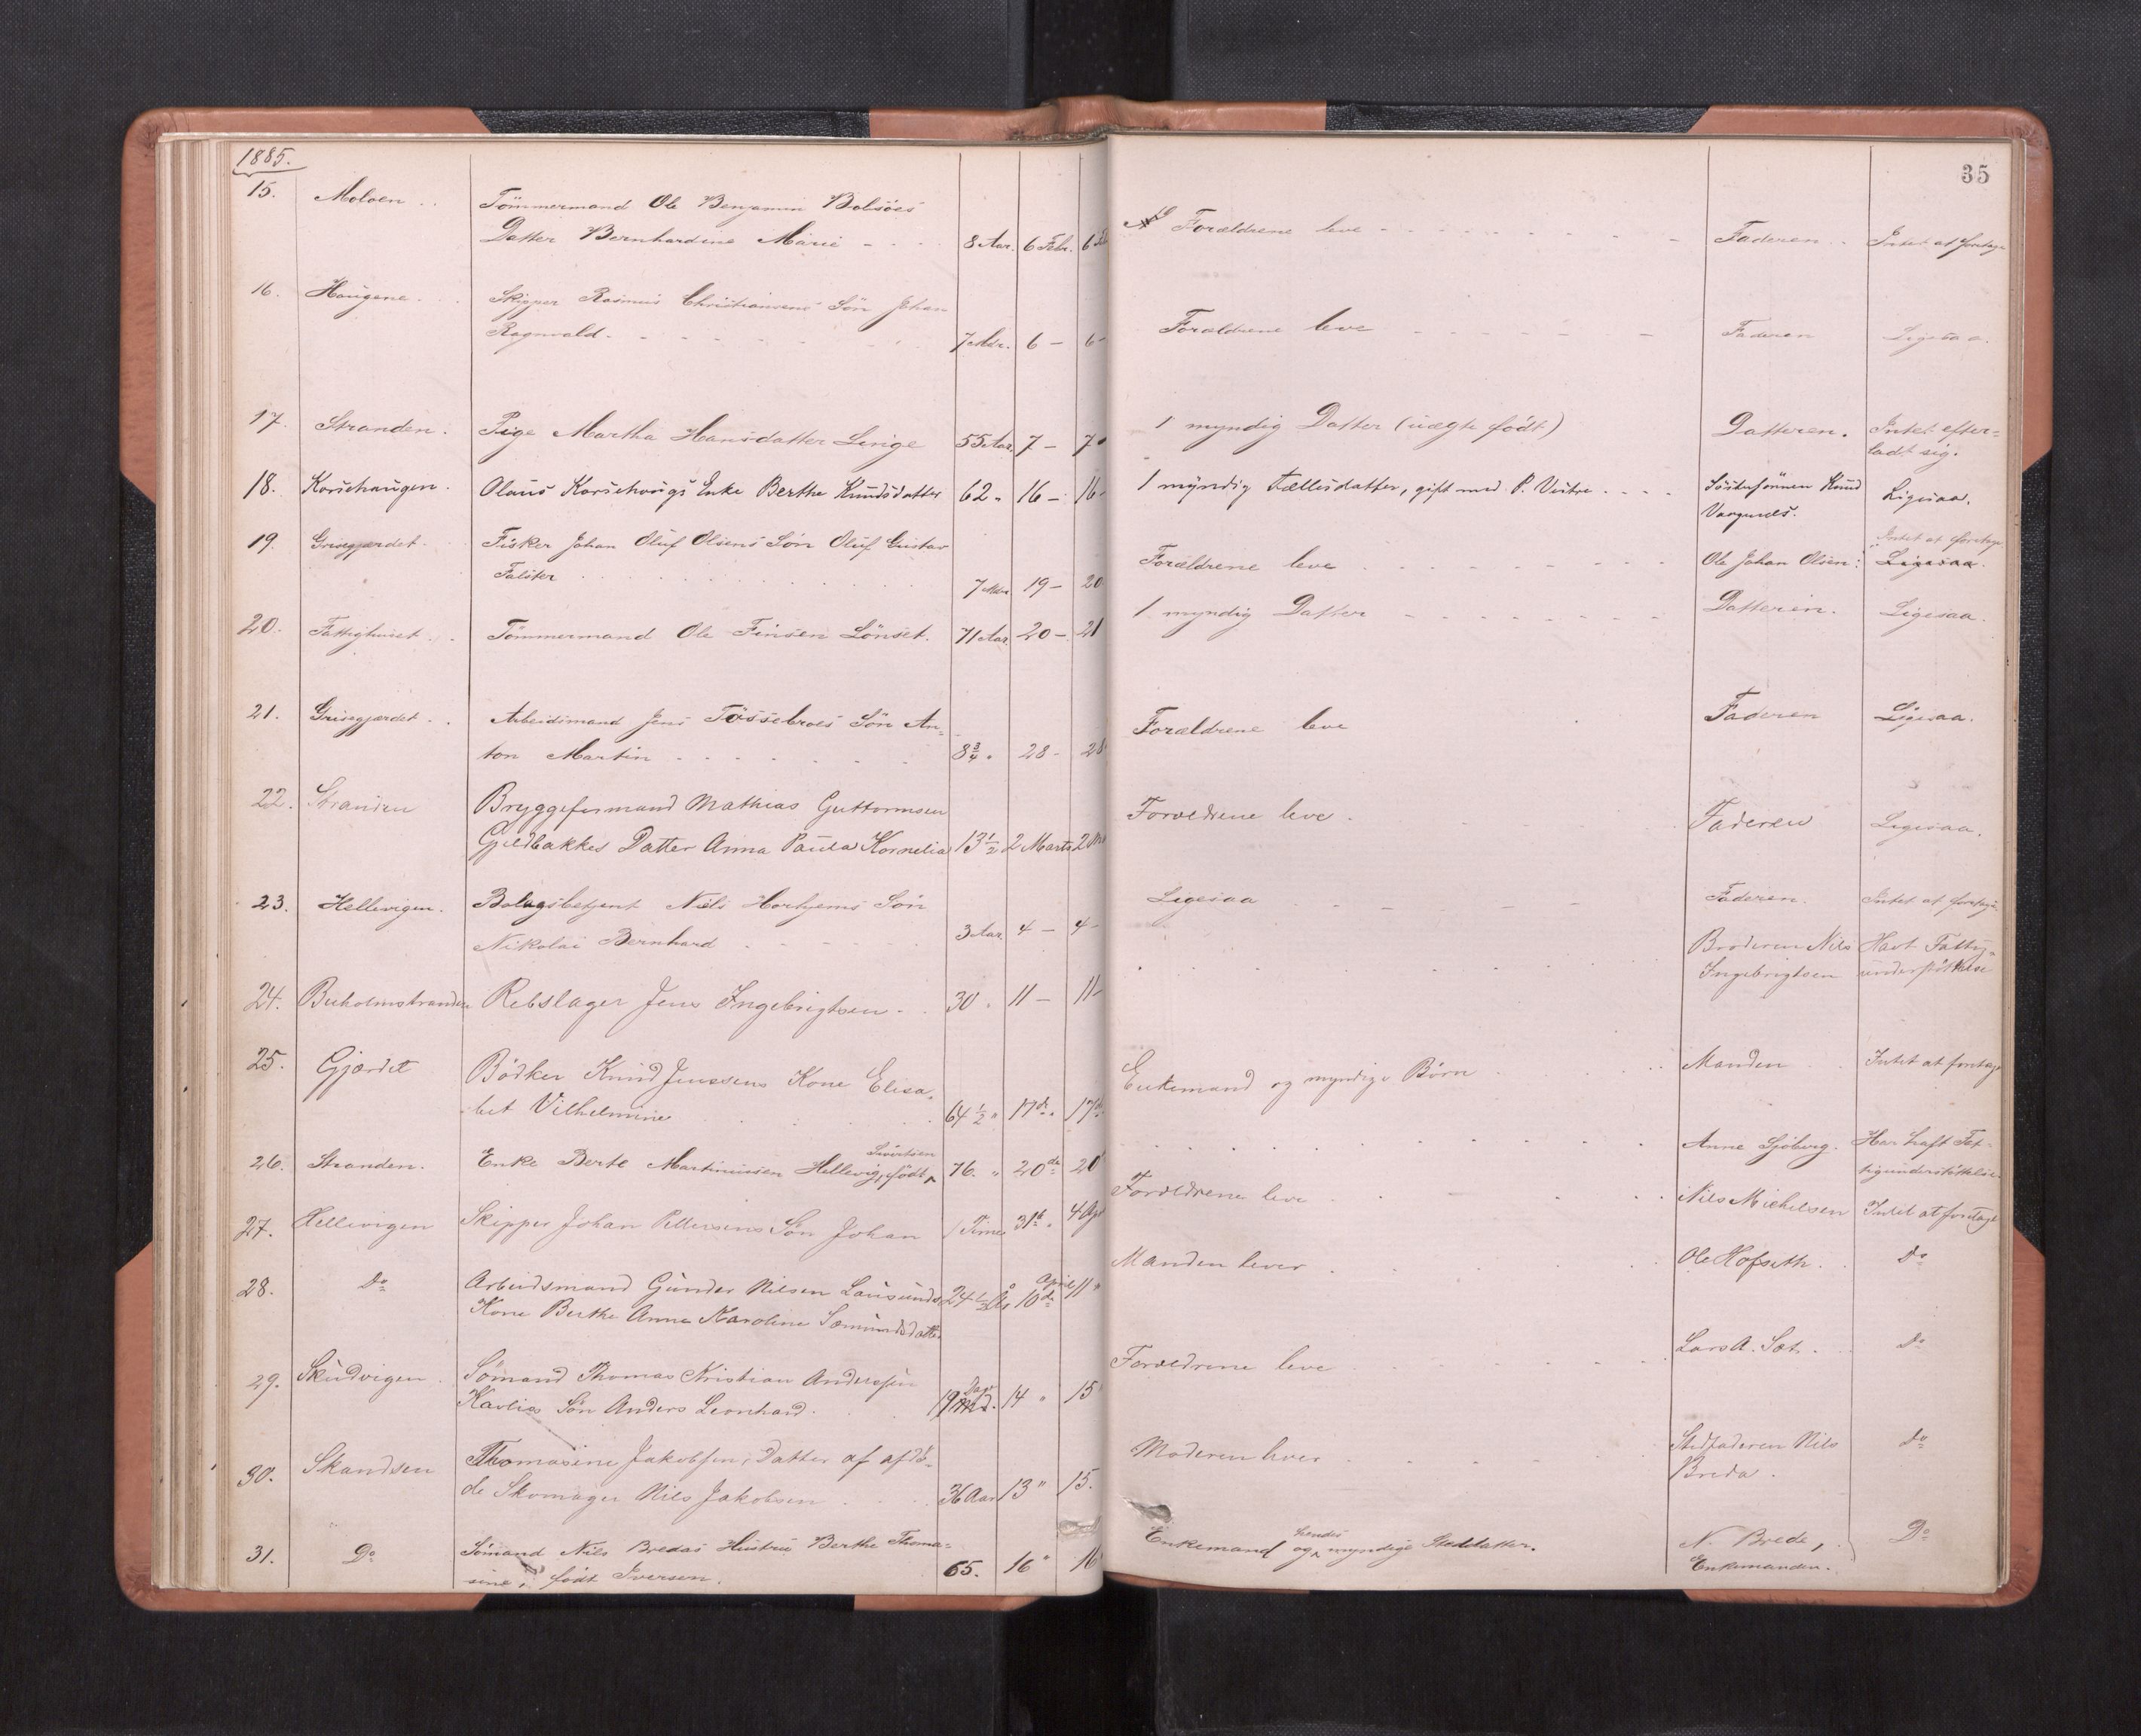 1885.
35
15. Moloen Tömmermand Ole Benjamin Bolsöes
Datter Bernhardine Marie 8 Aar. 6 Febr. 6 Forældrene leve Faderen Intet at foretage
16. Haugene Skipper Rasmus Christiansens Sön Johan
Ragnvald 7 Mdr. 6 – 6 – Forældrene leve Faderen Ligesaa.
17. Stranden. Pige Martha Hansdatter Linge 55 Aar. 7 – 7 1 myndig Datter (uægte födt) Datteren. Intet efter=
ladt sig.
18. Korschaugen. Olaus Korschougs Enke Berthe Knudsdatter 62 " 16 – 16 – 1 myndig Fællesdatter, gift med P. Södersönnen Knud Ligesaa.
19. Grisegjærdet Fisker Johan Oluf Olsens Sön Oluf Gustav Intet at foretage
Falster 7 Mdr 19 – 20 Forældrene leve Ole Johan Olsen. Ligesaa.
20. Fattighuset Tömmermand Ole Finsen Lönset. 71 Aar. 20 – 21 1 myndig Datter Datteren. Ligesaa.
21. Grisegjærdet Arbeidsmand Jens Tössebroes Sön An=
ton Martin 8 3/4 " 28 – 28 Forældrene leve Faderen Ligesaa.
22. Stranden Bryggeformand Mathias Guttormsen
Gjeldbakkes Datter Anna Paula Kornelia 13 1/2 2 Marts 2 Forældrene leve. Faderen Ligesaa.
23. Hellevigen. Bolagsbetjent Nils Horhjems Sön
Nikolai Bernhard 3 Aar. 4 – 4 – Ligesaa Faderen. Intet at foretage
24. Buholmstranden Rebslager Jens Ingebrigtsen 30 " 11 – 11 – Broderen Nils Ingebrigtsen Havt Fattig=
understöttelse
25. Gjærdet Bödker Knud Jenssens Kone Elisa=
bet Vilhelmine 64 1/2 " 17de 17de Enkemand og myndige Börn Manden Intet at foretage
26. Stranden. Enke Berte Martinusen Hellevig, födt Sivertsen 76. " 20de 20 Anne Sjöberg. Har haft Fat=
tigunderstöttelse.
27. Hellevigen Skipper Johan Pettersens Sön Johan 1 Time 31te 4 Apr Forældrene leve Nils Michelsen Intet at foretage
28. Do Arbeidsmand Gunder Nilsen Lausunds
Kone Berthe Anna Karoline Sæmundsdatter 24 1/2 År 10de April 11 " Manden lever Ole Hofseth. Do
29. Skudvigen. Sömand Thomas Kristian Anderssen
Kavlies Sön Anders Leonhard. 19 Dage 14 " 15 Forældrene leve Lars A. Sæt. Do
30. Skandsen Thomasine Jakobsen, Datter af afdö=
de Skomager Nils Jakobsen 36 Aar 13 " 15. Moderen lever Stedfaderen Nils
Breda. Do
31. Do Sömand Nils Bredas Hustru Berthe Thoma=
sine, födt Iversen. 65. 16 " 16 Enkemand og hendes myndige Steddatter. N. Brede,
Enkemanden. Do